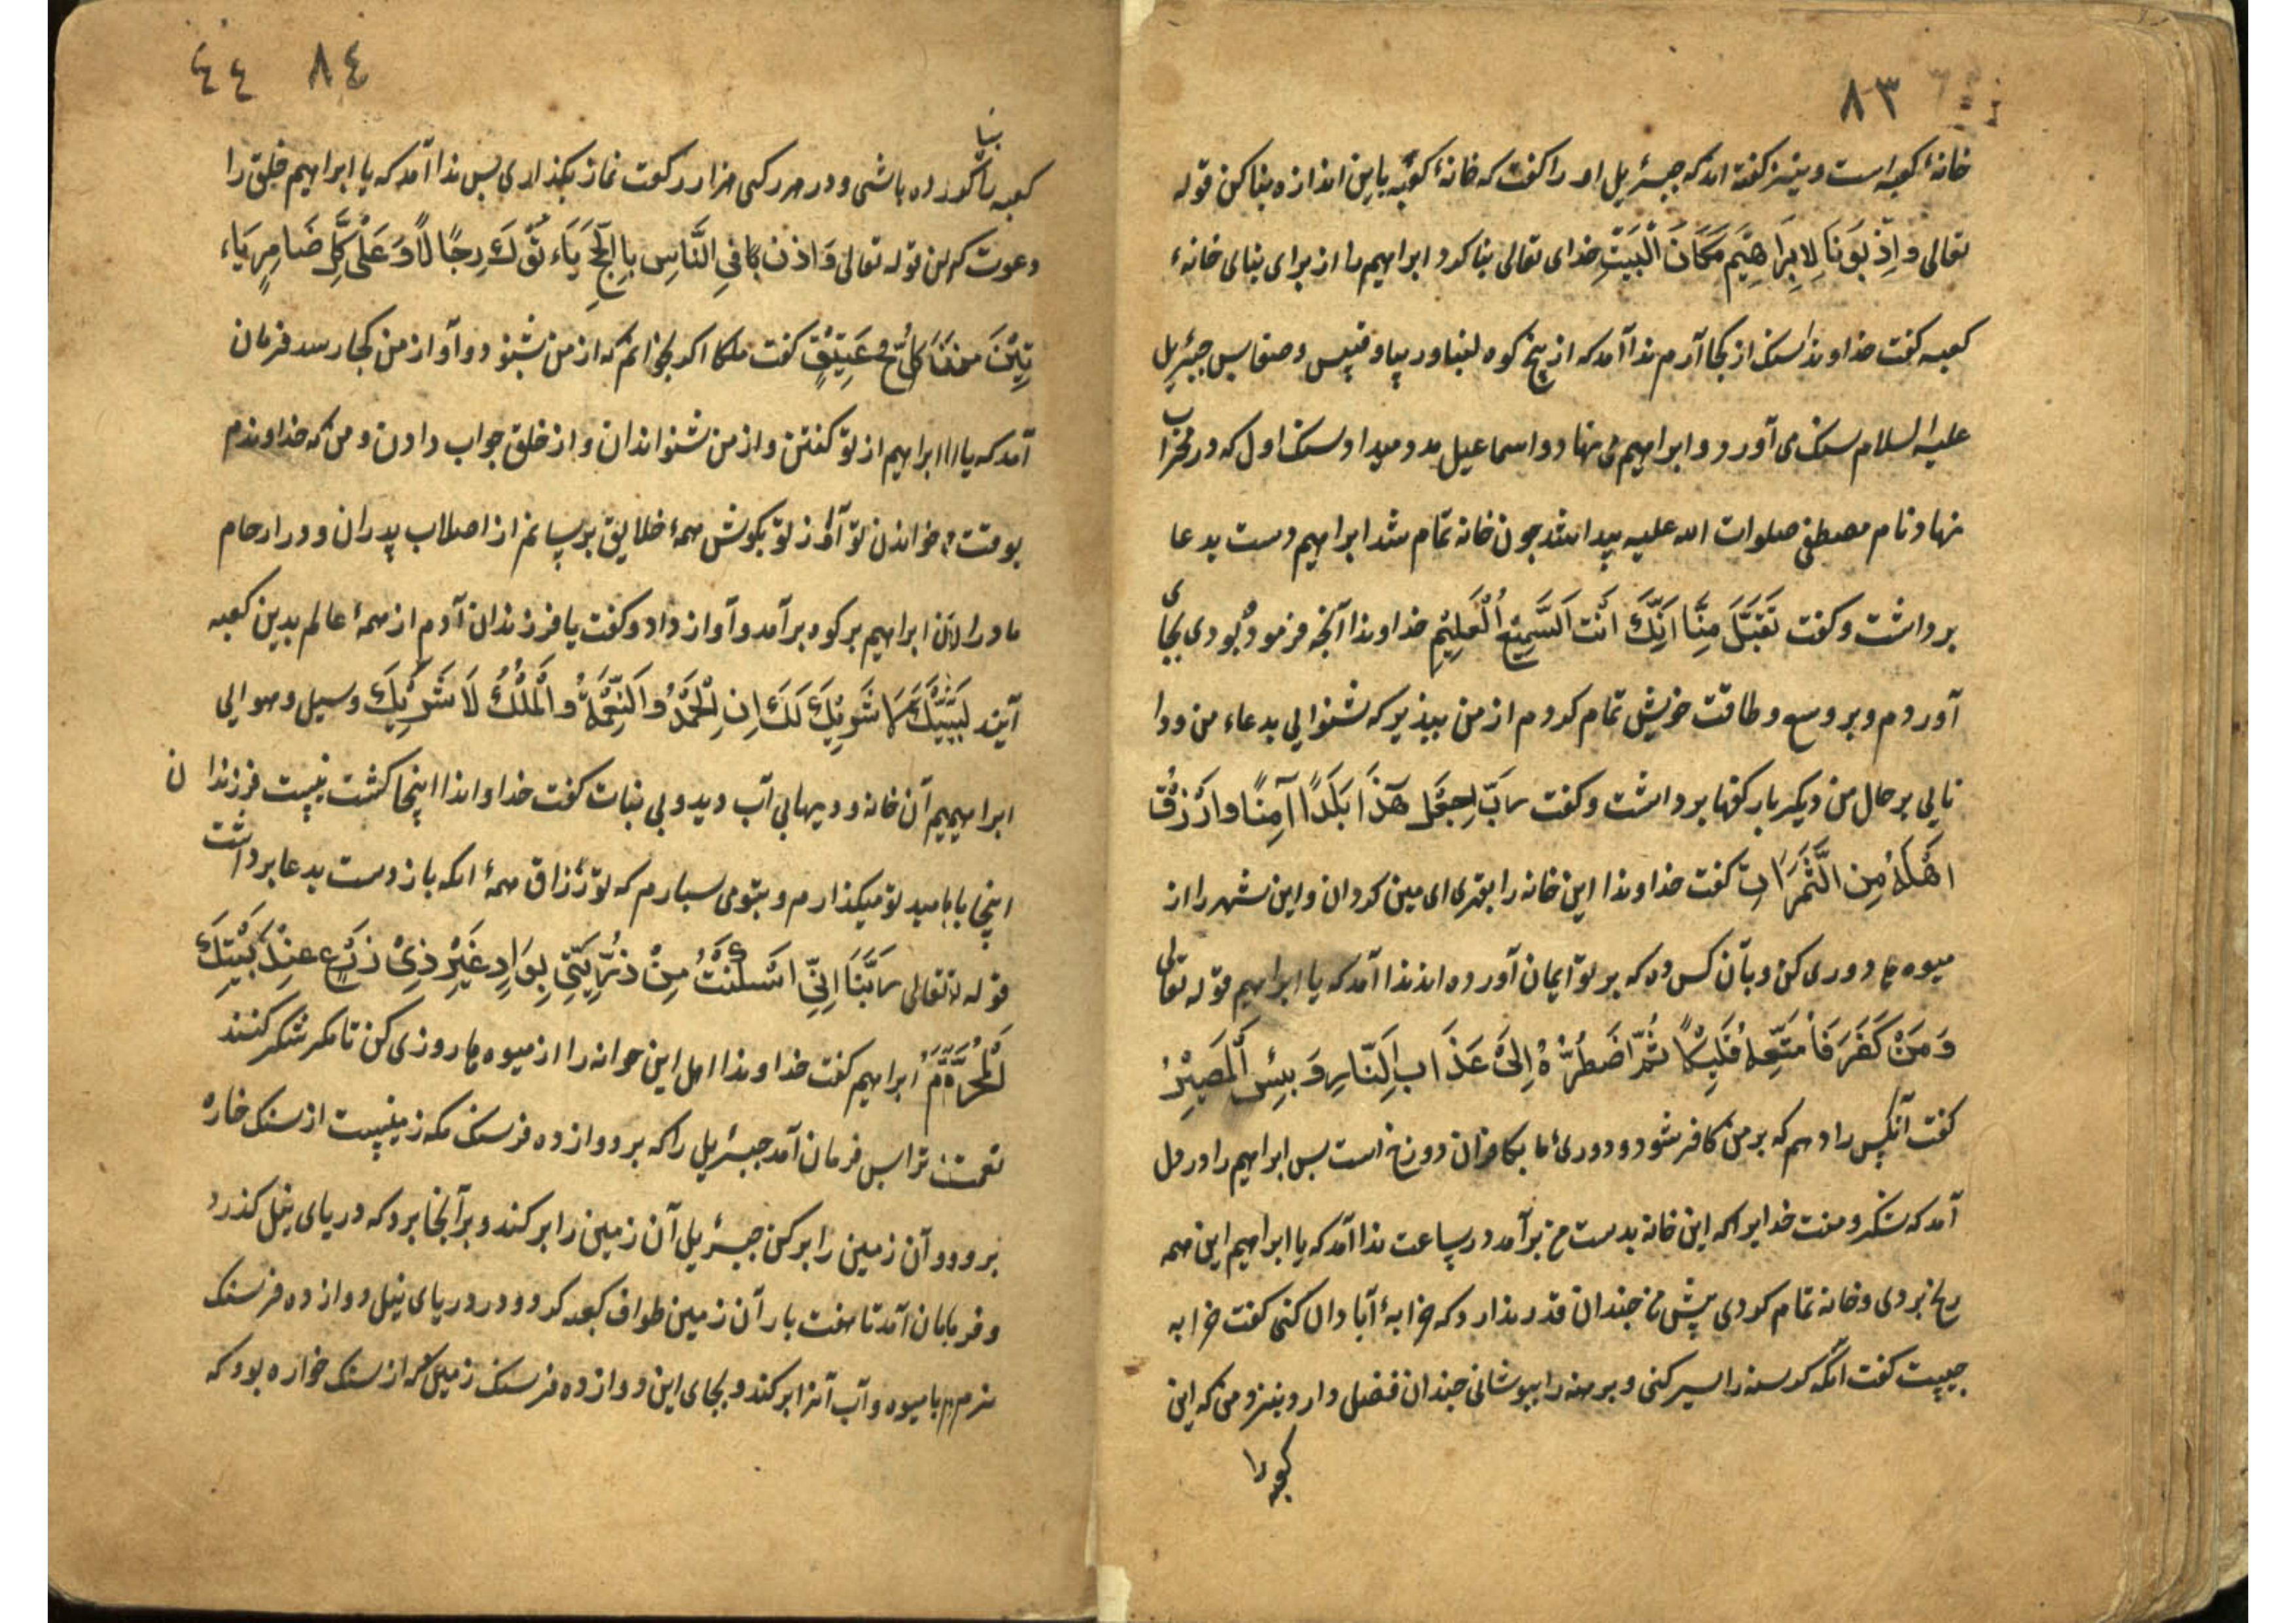 ٨٣
خانهٔ کعبه است و نیز گفته اند که جبرئیل او را گفت که خانهٔ کعبه باین اندازه بنا کن قوله
تعالی و اِذ بَوَنا لِابراهیم مَکانَ البَیتِ خدای تعالی بنا کرد ابراهیم را از برای بنای خانهٔ
کعبه گفت خداوندا سنک از کجا آرم ندا آمد که از پنج کوه لبنا و رپیا و قبیس و صفا پس جبرئیل
علیه السلام سنک می آورد و ابراهیم می نهاد و اسماعیل مدد میداد سنک اول که در محراب
نهاد نام مصطفی صلوات الله علیه پیدا شد چون خانه تمام شد ابراهیم دست بدعا
برداشت و گفت تَقَبَّل مِنَّا اِنَّکَ اَنتَ السَّمیعُ العَلیم خداوندا آنچه فرموده بودی بجای
آوردم و بر وسع و طاقت خویش تمام کردم از من بپذیر که شنوایی بدعاء من ودا
نایی بر حال من دیکر بار کفها برداشت و گفت رَبِّ اجعَل هٰذا بَلَداً آمِناً وارزُق
اَهلَهُ مِنَ الثَّمَرَاتِ گفت خداوندا این خانه را شهری ایمین کردان و این شهر را از
میوه ها دوری کن و بآن کس ده که بر تو ایمان آورده اند ندا آمد که یا ابراهیم قوله تعالی
وَمَنْ كَفَرَ فَاُمَتِّعُهُ قَلِیلًا ثُمَّ اَضطَرُّهُ اِلیٰ عَذَابِ النَّارِ وَ بِئسَ المَصِیرُ
گفت آنکس را دهم که بر من کافر شود و دوریٔ ما بکافران دوزخ است پس ابراهیم را در دل
آمد که شکر و منت خدایرا که این خانه بدست من برآمد در ساعت ندا آمد که یا ابراهیم این همه
رنج بردی و خانه تمام کردی پیش من چندان قدر ندارد که خرابهٔ آبادان کنی گفت خرابه
چیست گفت آنکه کرسنه را سیر کنی و برهنه را بپوشانی چندان فضل دارد بنزد من که این
کعبه را
٨٤ ٤٤
بنا
کعبه را کرده باشی و در هر رکنی هزار رکعت نماز بکذاردی پس ندا آمد که یا ابراهیم خلق را
دعوت کن قوله تعالی وَاَذن فِی النَّاسِ بِالحَجِّ یَاَءتُوْکَ رِجَالًا وَعَلیٰ کُلِّ ضَامِرٍ یَاء
تِیْنَ مِن کُلِّ فَجٍّ عَمِیْقٍ گفت ملکا اکر بخوانم که از من شنود و آواز من کجا رسد فرمان
آمد که یا ابراهیم از تو کفتن و از من شنواندان و از خلق جواب دادن و من که خداوندم
بوقت خواندن تو آواز تو بکوش همهٔ خلایق برسانم از اصلاب پدران و در ارحام
مادران ابراهیم بر کوه برآمد و آواز داد و گفت یا فرزندان آدم از همهٔ عالم بدین کعبه
آیید لَبَّیْکَ لا شَرِیْکَ لَکَ اِنَّ الْحَمْدَ وَ النِّعْمَةَ وَ الْمُلْکَ لَا شَرِیْکَ وسیل و هوایی
ابراهیم آن خانه و دیهابی آب دید و بی نبات گفت خداوندا اینجا کشت نیست فرزندان
اینجا بامید تو میکذارم و بتو می سپارم که تو رزاق همهٔ انکه باز دست بدعا برداشت
قوله تعالی رَبَّنَا اِنِّی اَسْکَنْتُ مِنْ ذُرِّیَّتِی بِوَادٍ غَیْرِ ذِیْ زَرْعٍ عِنْدَ بَیْتِکَ
الْمُحَرَّمِ ابراهیم گفت خداوندا اهل این حوانه را از میوه ها روزی کن تا مکر شکر کنند
نعمتت ترا پس فرمان آمد جبرئیل را که برو دوازده فرسنک مکه زمینیست از سنک خاره
برو و آن زمین را برکن جبرئیل آن زمین را برکند و برآنجا برد که دریای نیل کذرد
و فرمان آمد تا هفت بار آن زمین طواف کعبه کرد و در دریای نیل دوازده فرسنک
نرم با میوه و آب آنرا برکند و بجای این دوازده فرسنک زمین که از سنک خواره بود که